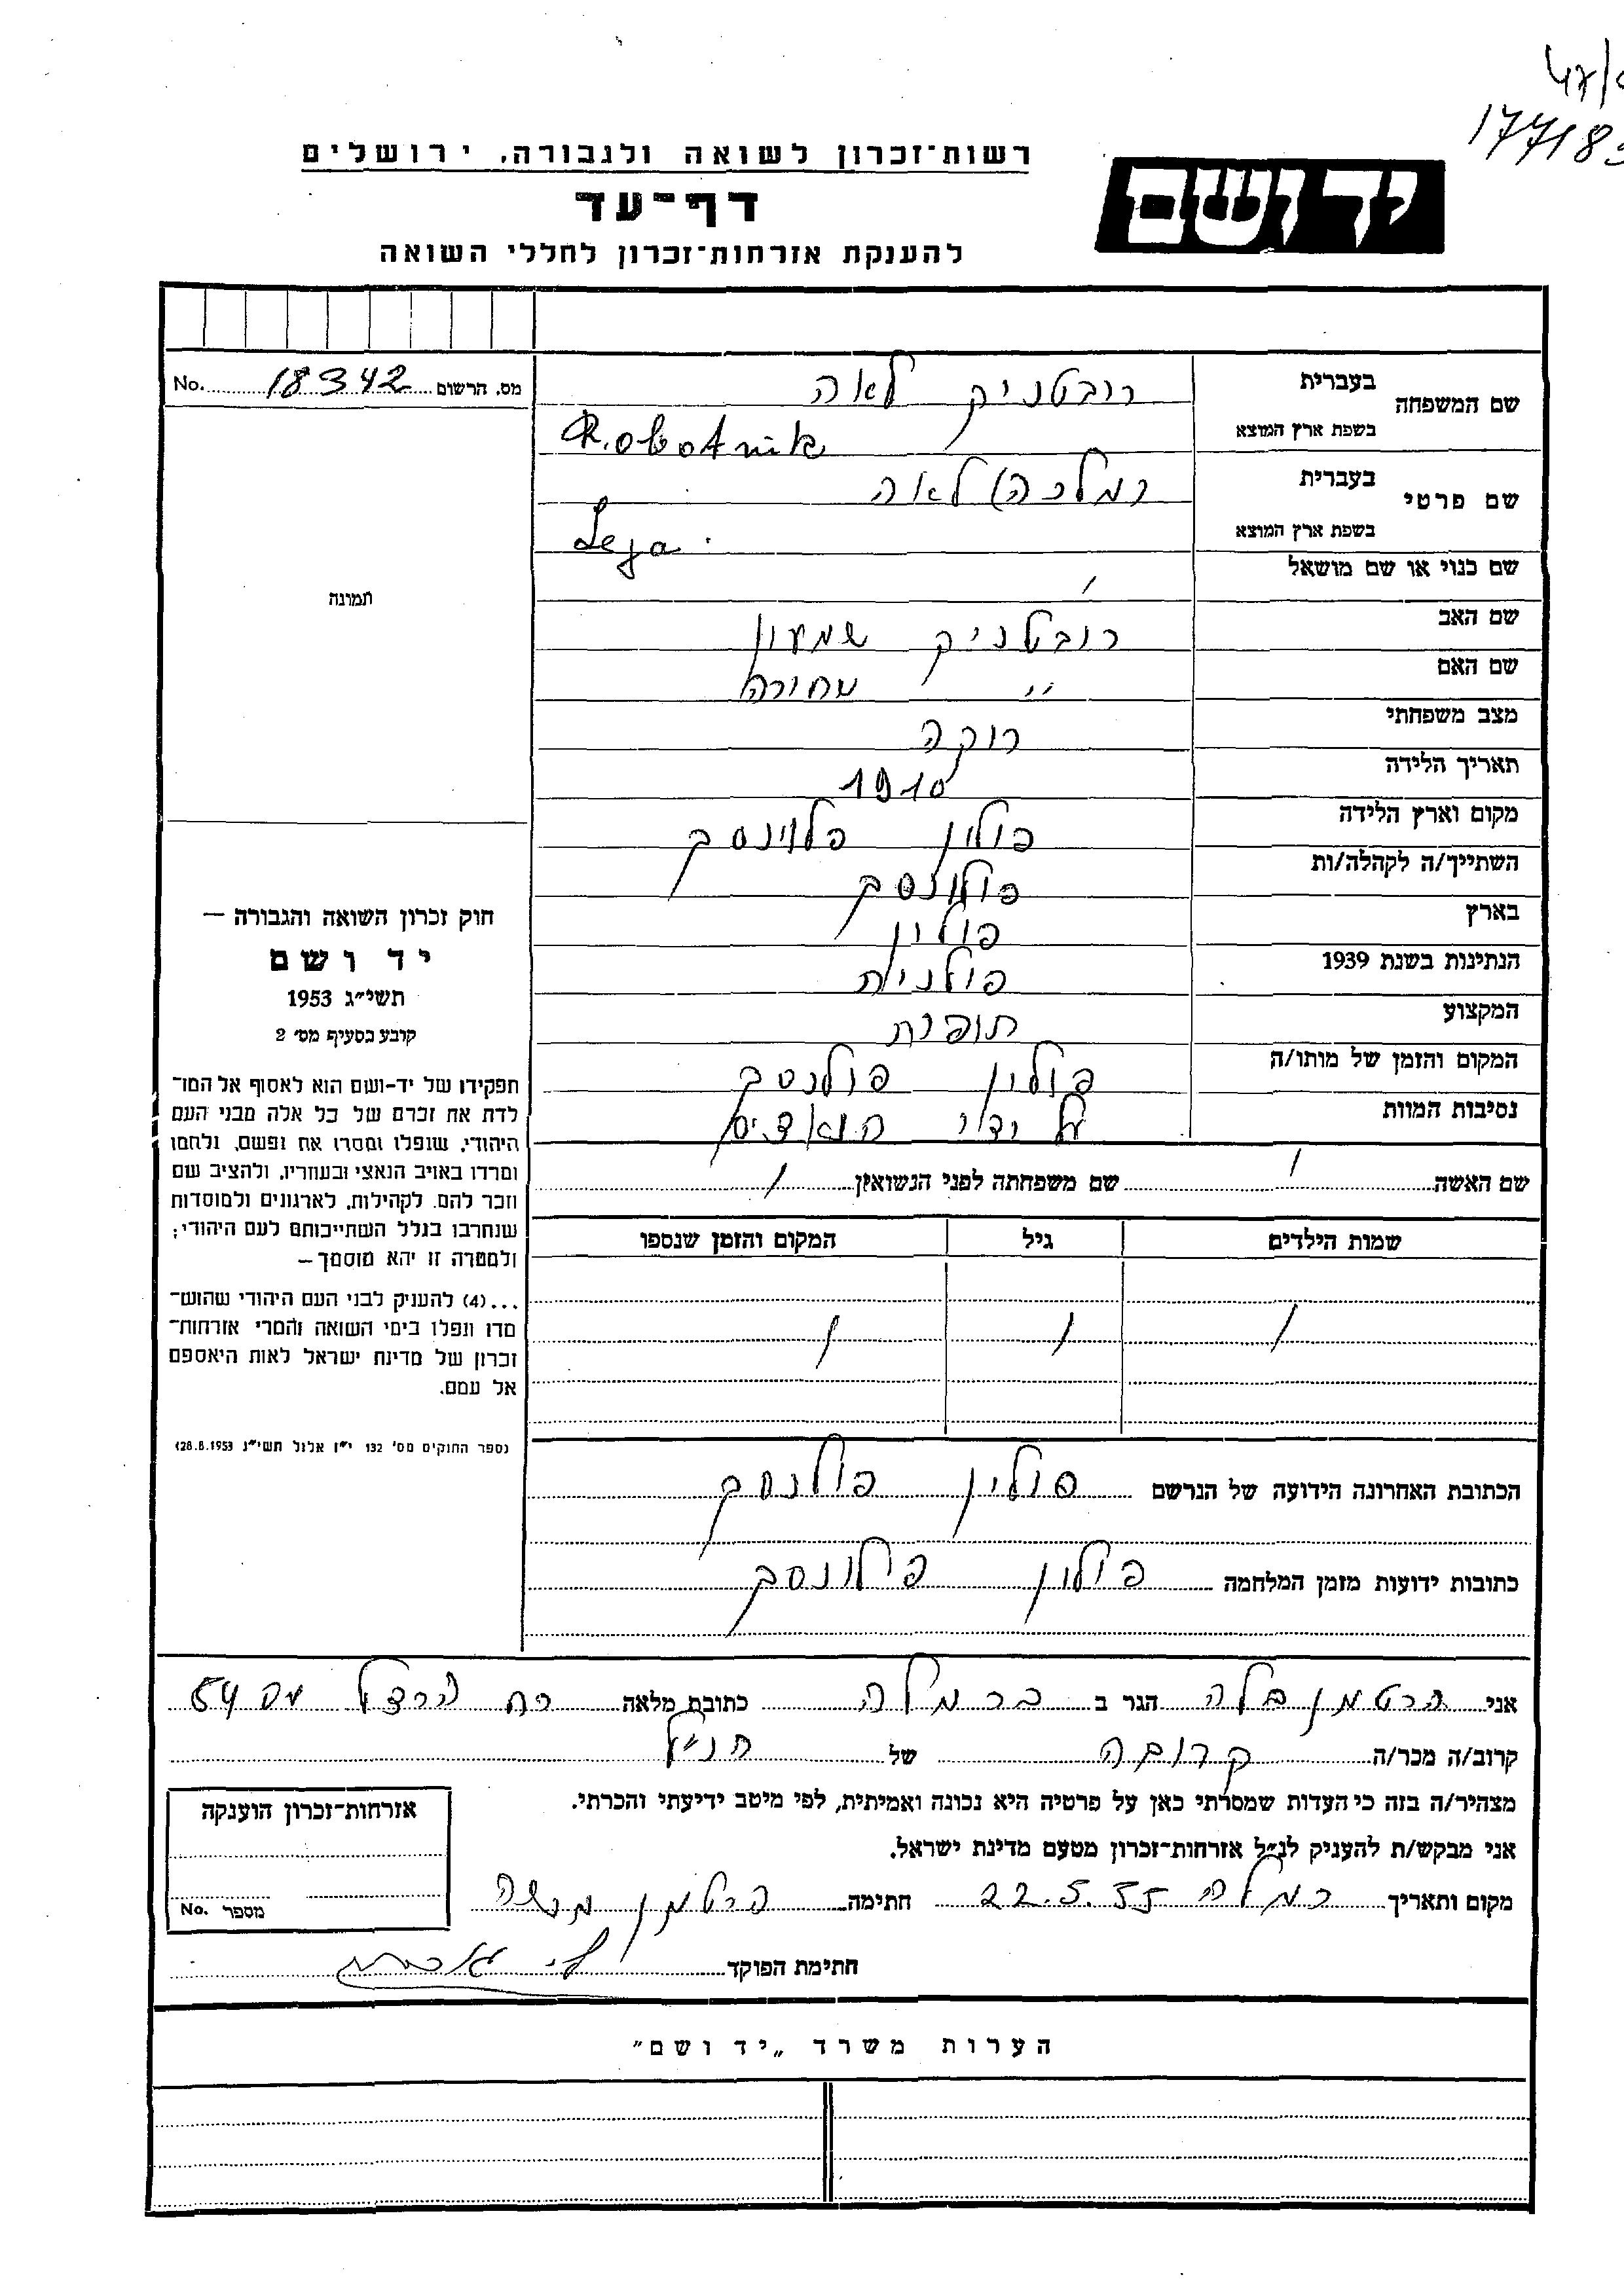 47/
17718
רשות־זכרון לשואה ולגבורה, ירושלים
יד ושם
דף־עד
להענקת אזרחות־זכרון לחללי השואה
מס. הרשום 18342 No.
שם המשפחה
בעברית רובטניק לאה
בשפת ארץ המוצא Robotnik
שם פרטי
בעברית (מלכה) לאה
בשפת ארץ המוצא Leja
שם כנוי או שם מושאל /
שם האב רובטניק שמעון
שם האם " שחורה
מצב משפחתי רוקה
תאריך הלידה 1910
מקום וארץ הלידה פולין פלוינסק
השתייך/ה לקהלה/ות פולונסק
בארץ פולין
הנתינות בשנת 1939 פולנית
המקצוע תופרת
המקום והזמן של מותו/ה פולין פולנסק
נסיבות המוות על ידי הנאצים
שם האשה / שם משפחתה לפני הנשואין /
שמות הילדים גיל המקום והזמן שנספו
/ / /
הכתובת האחרונה הידועה של הנרשם פולין פולנסק
כתובות ידועות מזמן המלחמה פולין פילונסק
תמונה
חוק זכרון השואה והגבורה —
יד ושם
תשי"ג 1953
קובע בסעיף מס' 2
תפקידו של יד-ושם הוא לאסוף אל המו־
לדת את זכרם של כל אלה מבני העם
היהודי, שנפלו ומסרו את נפשם, נלחמו
ומרדו באויב הנאצי ובעוזריו, ולהציב שם
וזכר להם, לקהילות, לארגונים ולמוסדות
שנחרבו בגלל השתייכותם לעם היהודי;
ולמטרה זו יהא מוסמך —
...(4) להעניק לבני העם היהודי שהוש־
מדו ונפלו בימי השואה והמרי אזרחות־
זכרון של מדינת ישראל לאות היאספם
אל עמם.
(ספר החוקים מס' 132 י"ז אלול תשי"ג 28.8.1953)
אני הרטמן בלה הגר ב ברמלה כתובת מלאה רח הרצל מס 54
קרוב/ה מכר/ה קרובה של הנ"ל
מצהיר/ה בזה כי העדות שמסרתי כאן על פרטיה היא נכונה ואמיתית, לפי מיטב ידיעתי והכרתי.
אני מבקש/ת להעניק לנ"ל אזרחות־זכרון מטעם מדינת ישראל.
מקום ותאריך רמלה 22.5.55 חתימה הרטמן
חתימת הפוקד
אזרחות־זכרון הוענקה
מספר No.
הערות משרד „יד ושם"